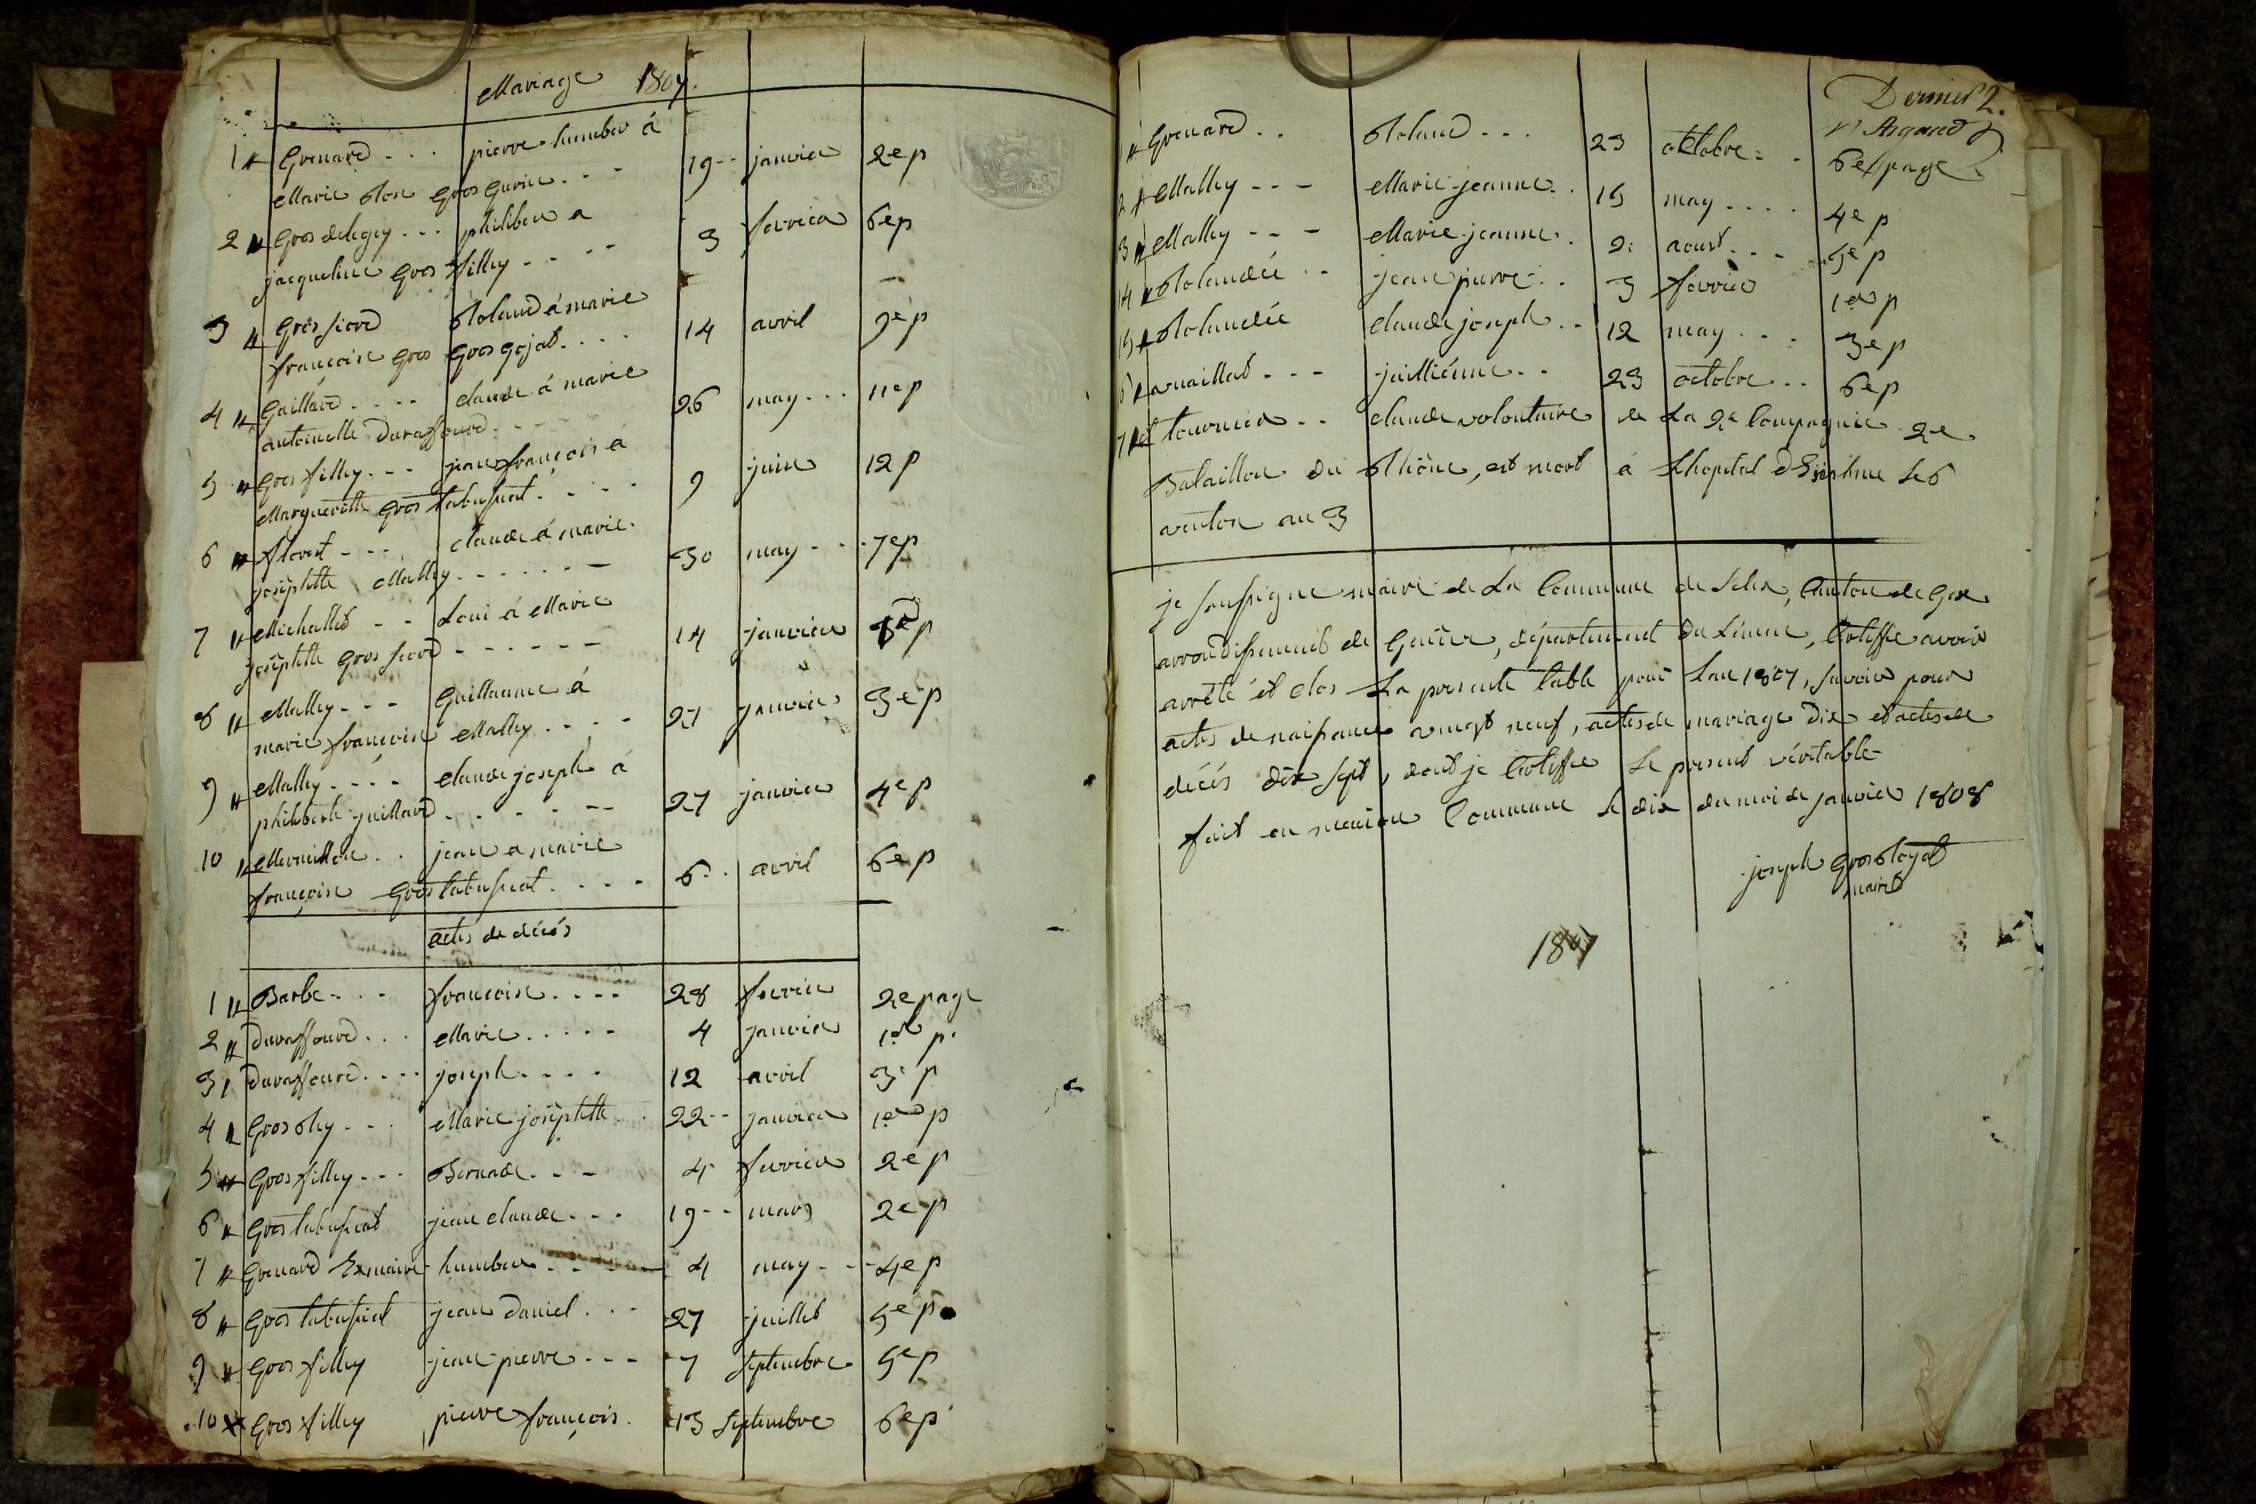 Mariage 1807.
1 Grenard - - - pierre humber á 19 -- janvier 2e p
Marie Rose Gros Gurin - - -
2 Gros delegey - - - philiber a 3 fevrier 6e p
jacqueline Gros filley - - - -
3 Gros fiord Roland á marie 14 avril 9e p
françoise Gros Gros gojat - - - -
4 Gaillard - - - - claude á marie 26 may - - - 11e p
antoinette Duraffourd - - - -
5 Gros filley - - - jean françois á 9 juin 12 p
Margueritte Gros tabussiat - - - -
6 - - - claude á marie 30 may - - - 7e p
josephtte Malley - - - - - - -
7 Michallet - - Loui á Marie 14 janvier p
josephtte Gros fiord - - - - - -
8 Malley - - - Guillaume á 27 janvier 3e p
marie françoise Malley - - - -
9 Malley - - - - claude joseph á 27 janvier 4e p
philiberte juillard - - - - - -
10 Mermillon - - jean a marie 6 - - avril 6e p
françoise Gros tabussiat - - - -
actes de décés
1 Barbe - - - françoise - - - - 28 fevrier 2e page
2 duraffourd - - - Marie - - - - - 4 janvier 1er p.
3 duraffourd - - - - joseph - - - - 12 avril 3e p
4 Gros Rey - - - Marie josephtte 22 -- janvier 1er p
5 Gros filley - - - Bernade - - - 4 fevrier 2e p
6 Gros tabussiat jean claude - - - 19 -- mars 2e p
7 Grenard Exmaire humber - - - - 4 may - - - 4e p
8 Gros tabussiat jean daniel - - - 27 juillet 5e p
9 Gros filley jean pierre - - - 7 septembre 5e p
10 Gros filley pierre françois. 13 septembre 6e p
Dernier 2.
Grenard - - Roland - - - 23 octobre - - 6e page
2 Malley - - - Marie jeanne - . 15 may - - - - 4e p
3 Malley - - - Marie jeanne . 2 aoust - - - 5e p
14 Rolandée - - jean pierre - - 3 fevrier 1er p
15 Rolandée claude joseph - - 12 may - - - 3e p
6 vuaillat - - - juillienne - - 23 octobre - - 6e p
7 tournier - - claude volontaire de La 2e Compagnie 2e
Bataillon du Rhône, est mort á Lhopital le 6
ventose an 3
je soussigne maire de La Commune de Lelex, Canton de Gex
arrondissement de Genève, département du Léman, Certiffie avoir
arrêté et clos La presente table pour Lan 1807, savoir pour
actes de naissance vingt neuf, actes de mariage dix et actes de
décés dix sept, dont je Certiffie Le present véritable
fait en maison Commune le dix du moi de janvier 1808
joseph Gros
maire
1807